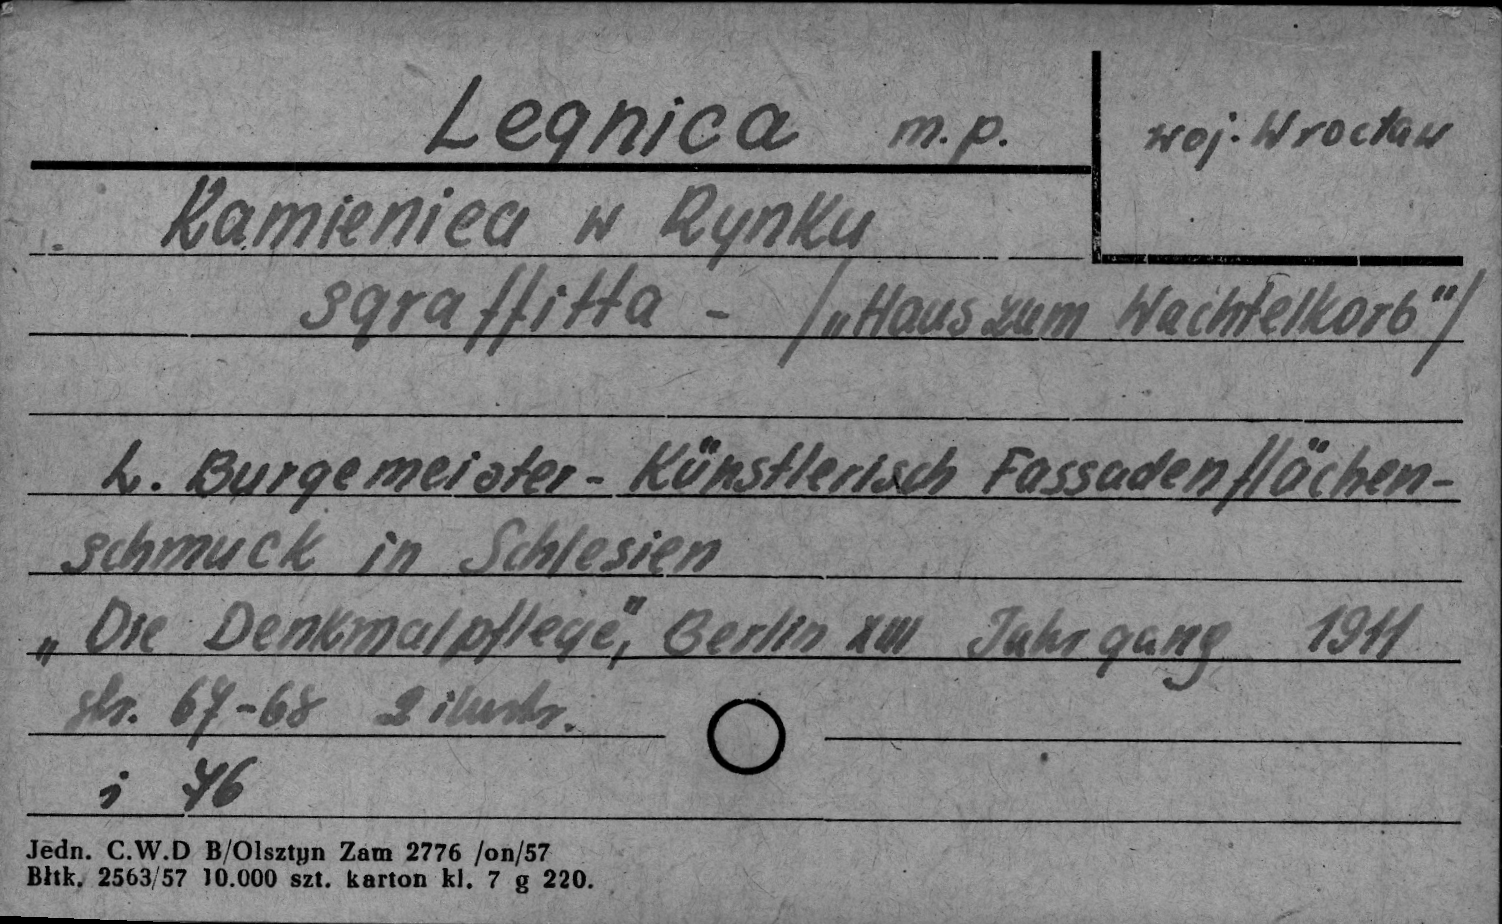 Legnica m. p.
woj. Wrocław
Kamienica w Rynku
sgraffitta - /„Haus zum Wachtelkorb"/
L. Burgemeister - Künstlerisch Fassadenflächen-
schmuck in Schlesien
„Die Denkmalpflege", Berlin XIII Jahrgang 1911
str. 67-68 2 ilustr.
i 76
Jedn. C.W.D B/Olsztyn Zam 2776 /on/57
Błtk. 2563/57 10.000 szt. karton kl. 7 g 220.